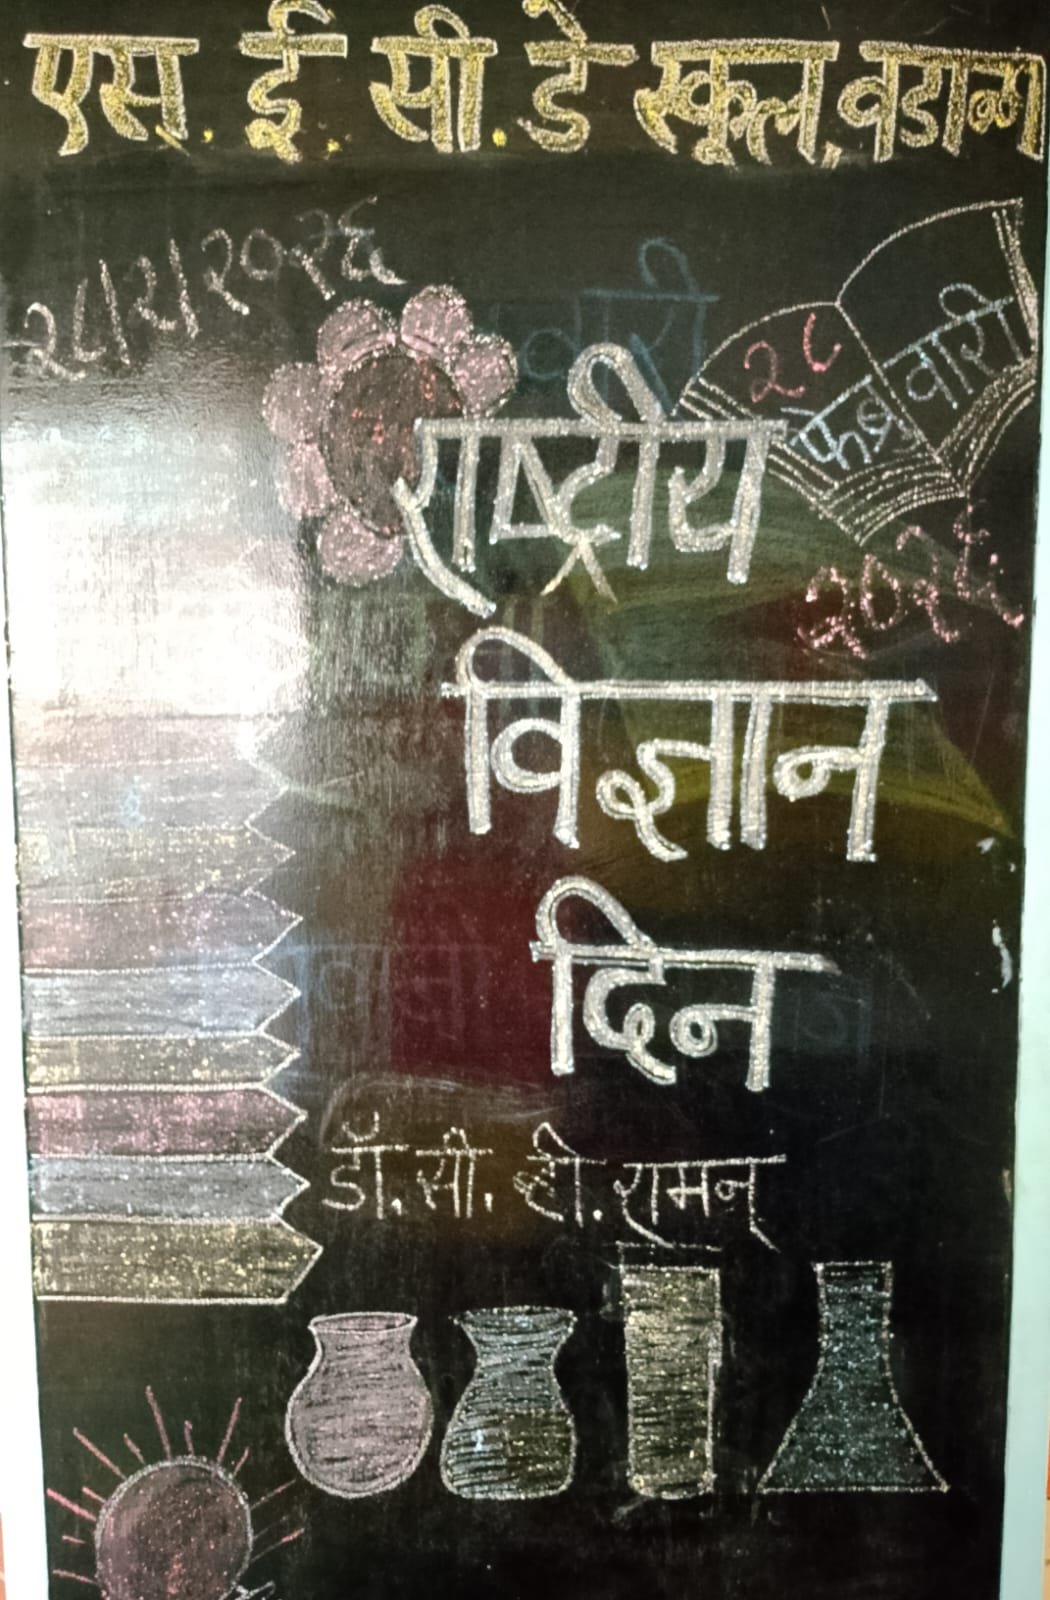 एस. ई. सी. डे स्कूल, वडाळा
२८/२/२०२६
२८
फेब्रुवारी
२०२६
राष्ट्रीय
विज्ञान
दिन
डॉ. सी. व्ही. रामन्